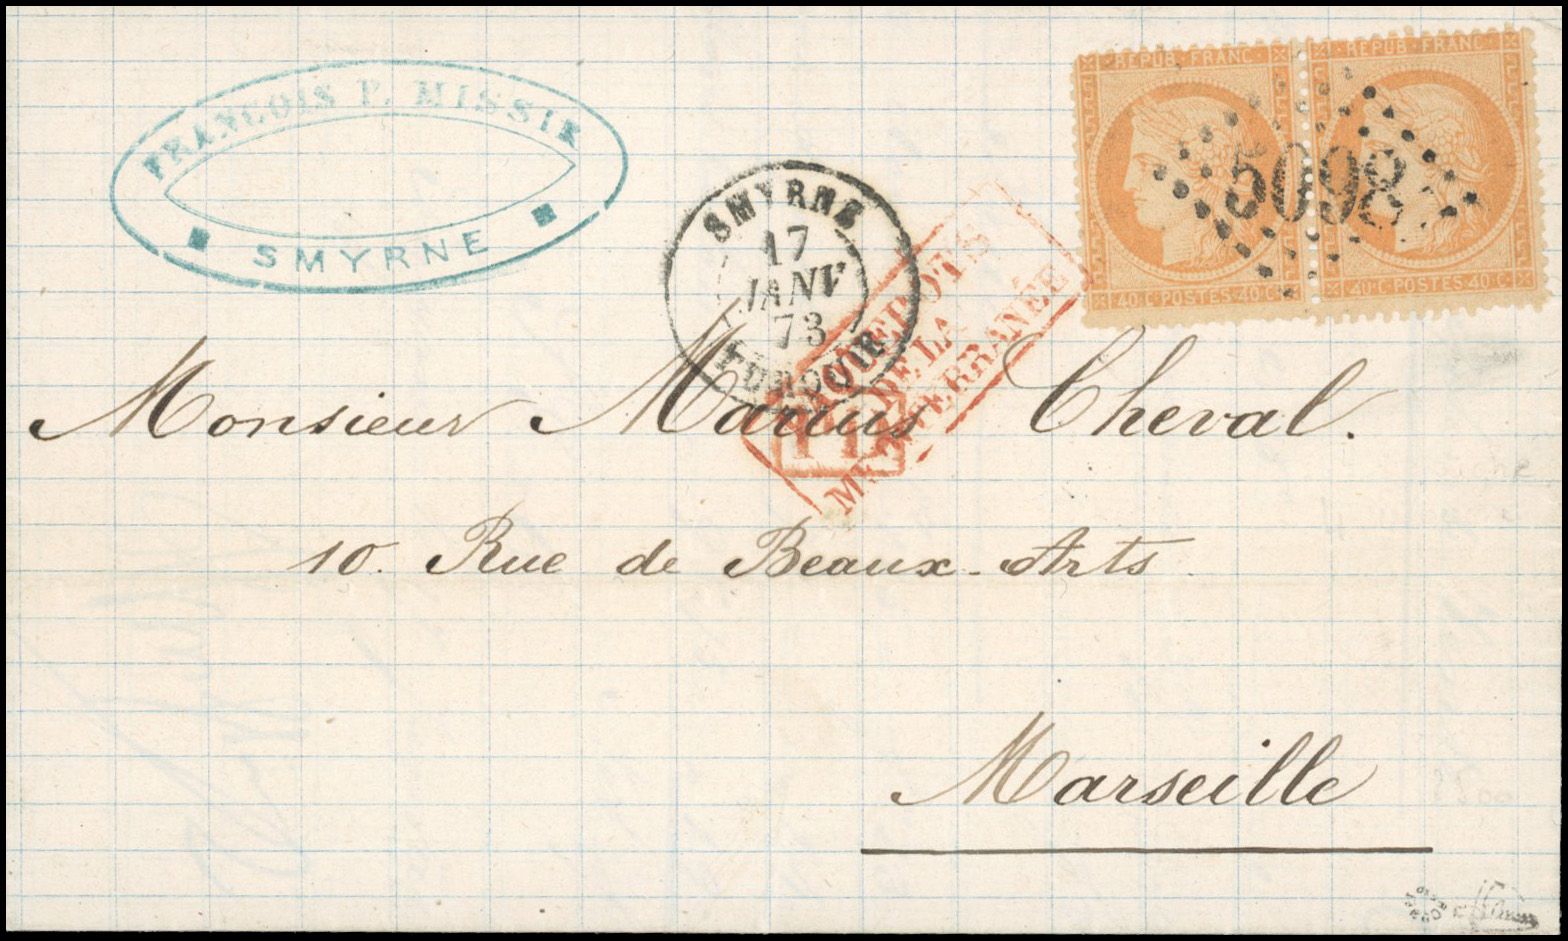 FRANÇOIS P. MISSIR
SMYRNE
SMYRNE
17
JANV
73
TURQUIE
PAQUEBOTS
DE LA
MÉDITERRANÉE
REPUB. FRANC.
40·C·POSTES·40·C
REPUB. FRANC.
40·C·POSTES·40·C
5098
Monsieur Marius Cheval.
10. Rue de Beaux-Arts
Marseille